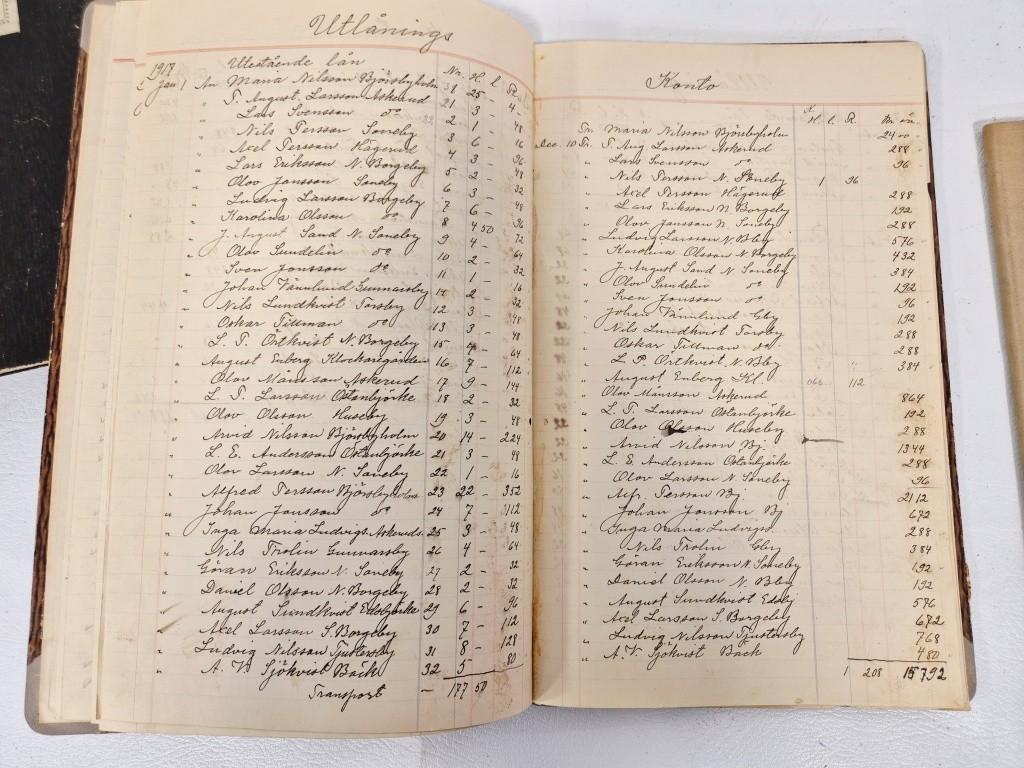 Utlånings
1917 Utestående lån No. H. l. R.
Jan. 1 An Maria Nilsson Björsbyholm 31 25 -
" P. August. Larsson Askerud 21 3 - 4 -
" Lars Svensson do 2 1 - 48
" Nils Persson Soneby 3 6 - 16
" Axel Persson Hägerud 4 3 - 96
" Lars Eriksson N. Borgeby 5 2 - 48
" Olov Jonsson Soneby 6 3 - 32
" Ludvig Larsson Borgeby 7 6 - 48
" Karolina Olsson do 8 4 50 96
" J. August Sand N. Soneby 9 4 - 72
" Olov Sundelin do 10 2 - 64
" Sven Jonsson do 11 1 - 32
" Johan Vännlund Gunnarsby 14 2 - 16
" Nils Lundkvist Torsby 12 3 - 32
" Oskar Tillman do 13 3 - 48
" L. P. Örtkvist N. Borgeby 15 4 - 48
" August Enberg Klockaregården 16 7 - 64
" Olov Månsson Askerud 17 9 - 112
" L. P. Larsson Östanbjörke 18 2 - 144
" Olov Olsson Huseby 19 3 - 32
" Arvid Nilsson Björsbyholm 20 14 - 48
" L. E. Andersson Östanbjörke 21 3 - 224
" Olov Larsson N. Soneby 22 1 - 48
" Alfred Persson Björsbyholm 23 22 - 16
" Johan Jonsson do 24 7 - 352
" Inga Maria Ludvigs. Askerud 25 3 - 112
" Nils Frolin Gunnarsby 26 4 - 48
" Göran Eriksson N. Soneby 27 2 - 64
" Daniel Olsson N. Borgeby 28 2 - 32
" August Sundkvist Edsbjörke 29 6 - 32
" Axel Larsson S. Borgeby 30 7 - 96
" Ludvig Nilsson Tjustersby 31 8 - 112
" A. V. Sjökvist Bäck 32 5 - 128
80
Transport - 177 50
Konto
H. l. R. Kr. ör.
Pr. Maria Nilson Björsbyholm 24 00
Dec. 10 Pr. P. Aug. Larsson Askerud 288
" Lars Svensson do 96
" Nils Persson N. Soneby 1 96
" Axel Persson Hägerud 288
" Lars Eriksson N. Borgeby 192
" Olov Jonsson N. Soneby 288
" Ludvig Larsson N. Bby 576
" Karolina Olsson N. Borgeby 432
" J. August Sand N. Soneby 384
" Olov Sundelin do 192
" Sven Jonsson do 96
" Johan Vännlund Gby 192
" Nils Lundkvist Torsby 288
" Oskar Tillman do 288
" L. P. Örtkvist N. Bby 384
" August Enberg Kl. 112
" Olov Månsson Askerud 864
" L. P. Larsson Östanbjörke 192
" Olov Olsson Huseby 288
" Arvid Nilsson Bj. 1344
" L. E. Andersson Östanbjörke 288
" Olov Larsson N. Soneby 96
" Alfr. Persson Bj. 2112
" Johan Jonsson Bj 672
" Inga Maria Ludvigs 288
" Nils Frolin Gby 384
" Göran Eriksson N. Soneby 192
" Daniel Olsson N. Bby 192
" August Sundkvist Edsby 576
" Axel Larsson S. Borgeby 672
" Ludvig Nilsson Tjustersby 768
" A. V. Sjökvist Bäck 480
1 208 15792